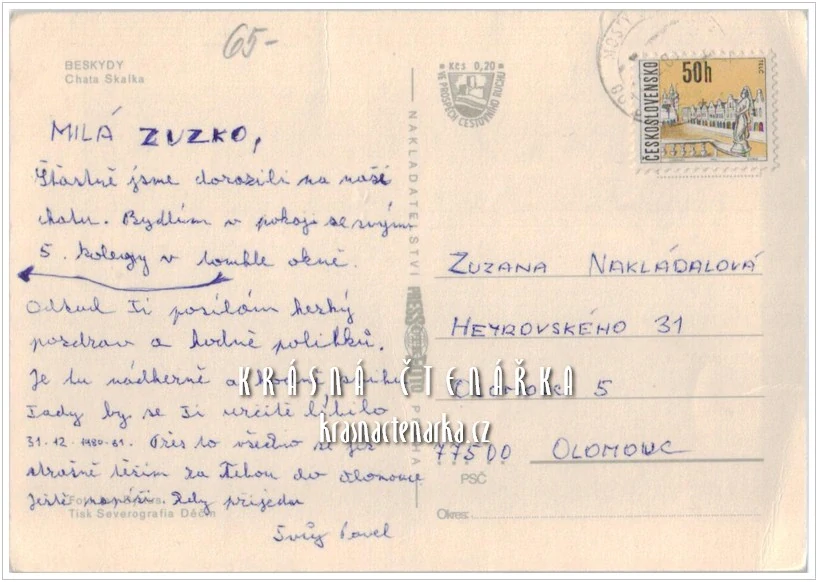 65-
BESKYDY
Chata Skalka
MILÁ ZUZKO,
Šťastně jsme dorazili na naši
chatu. Bydlím v pokoji se svými
5. kolegy v tomhle okně.
Odkud Ti posílám hezký
pozdrav a hodně polibků.
Je tu nádherně a hodně sněhu.
Tady by se Ti určitě líbilo
31.12.1980-81. Přes to všechno se již
strašně těším za Tebou do Olomouce
Ještě napíši. Kdy přijedu
Tvůj Pavel
Tisk Severografia Děčín
NAKLADATELSTVÍ
PRESSFOTO
PRAHA
Kčs 0,20
VE PROSPĚCH CESTOVNÍHO RUCHU
ČESKOSLOVENSKO
50h
TELČ
ZUZANA NAKLÁDALOVÁ
HEYROVSKÉHO 31
Olomouc 5
77500 OLOMOUC
PSČ
Okres:
KRÁSNÁ ČTENÁŘKA
krasnactenarka.cz